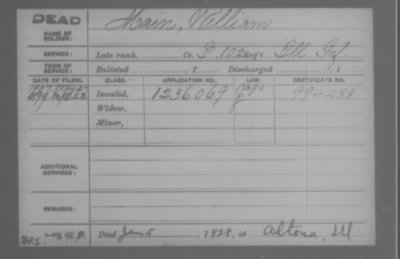 DEAD
NAME OF SOLDIER: Main, William
SERVICE: Late rank, Co. D, 102 Reg't Ill Inf
TERM OF SERVICE: Enlisted , 1 Discharged , 1
DATE OF FILING. CLASS. APPLICATION NO. LAW. CERTIFICATE NO.
Invalid, 1236069 994288
Widow,
Minor,
ADDITIONAL SERVICES:
REMARKS:
Died Jan 5, 1928, at Altona, Ill